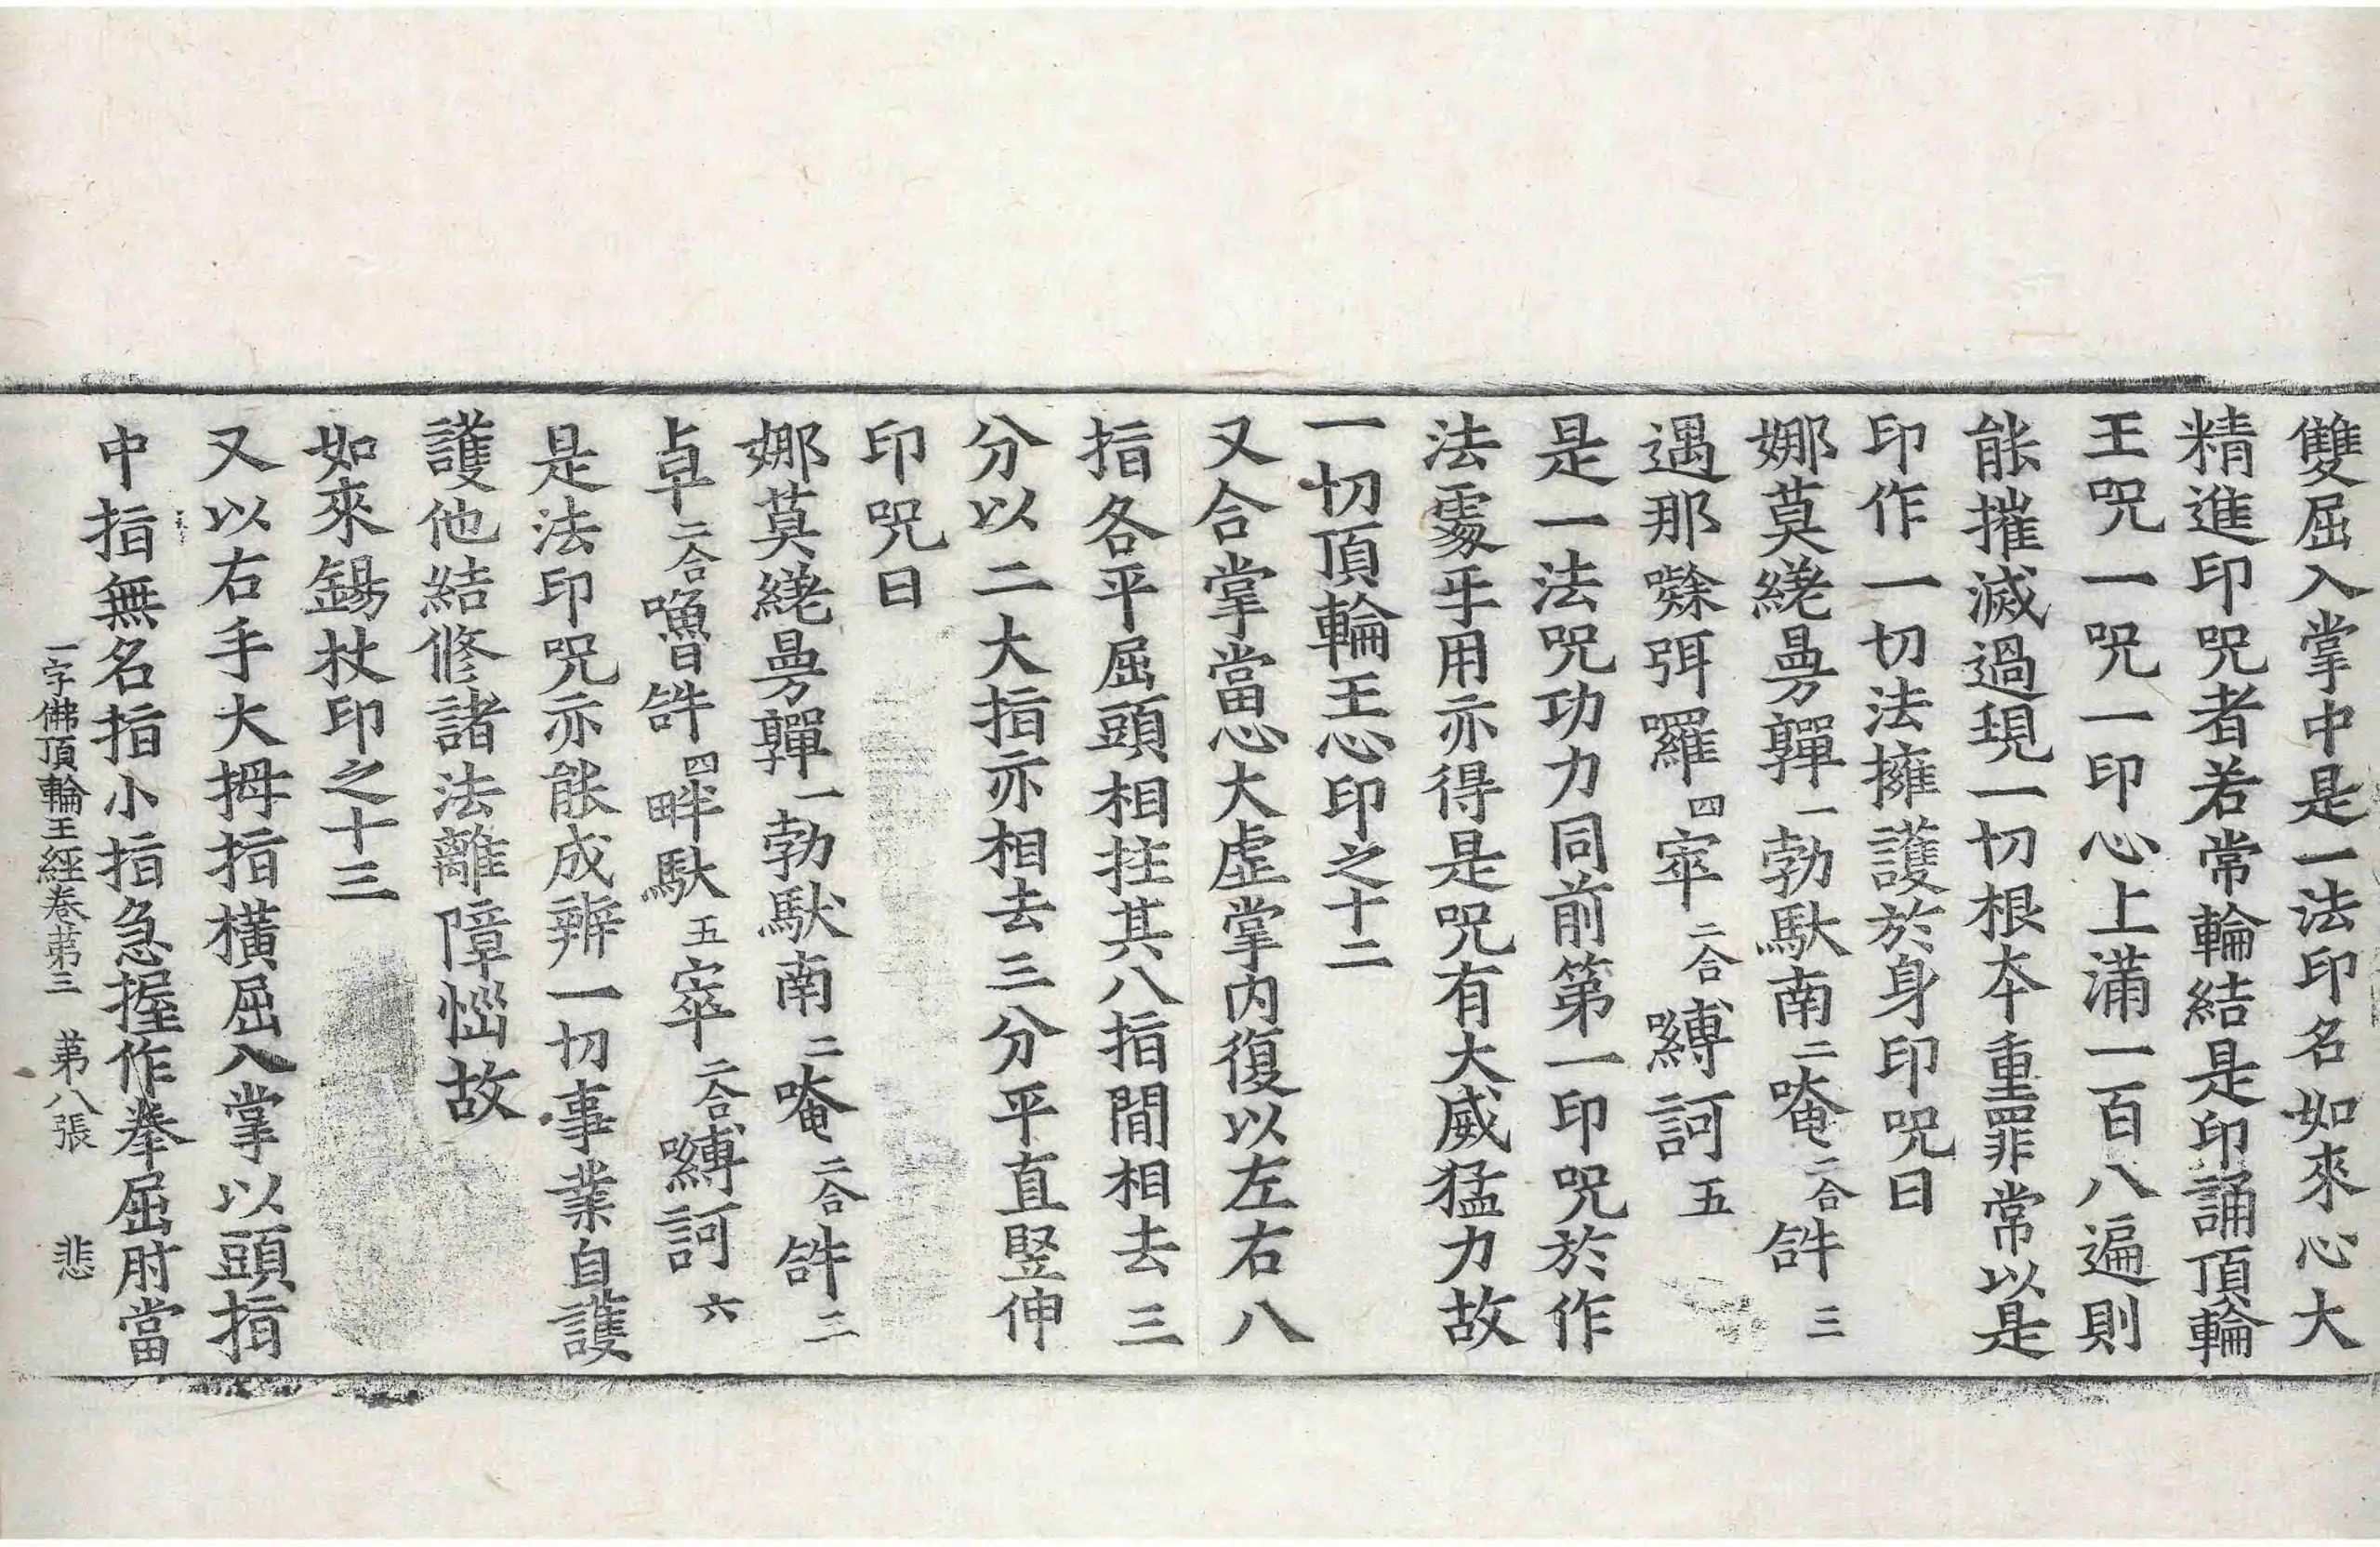 雙屈入掌中是一法印名如來心大
精進印咒者若常輪結是印誦頂輪
王咒一咒一印心上滿一百八遍則
能摧滅過現一切根本重罪常以是
印作一切法擁護於身印咒曰
娜莫縒曼嚲一勃馱南二唵二合𤙖三
遏那㗚弭囉四窣二合嚩訶五
是一法咒功力同前第一印咒於作
法處手用亦得是咒有大威猛力故
一切頂輪王心印之十二
又合掌當心大虛掌內復以左右八
指各平屈頭相拄其八指間相去三
分以二大指亦相去三分平直竪伸
印咒曰
娜莫縒曼嚲一勃馱南二唵二合𤙖三
卓二合嚕𤙖四畔馱五窣二合嚩訶六
是法印咒亦能成辦一切事業自護
護他結修諸法離障惱故
如來錫杖印之十三
又以右手大拇指橫屈入掌以頭指
中指無名指小指急握作拳屈肘當
一字佛頂輪王經卷第三 第八張 悲